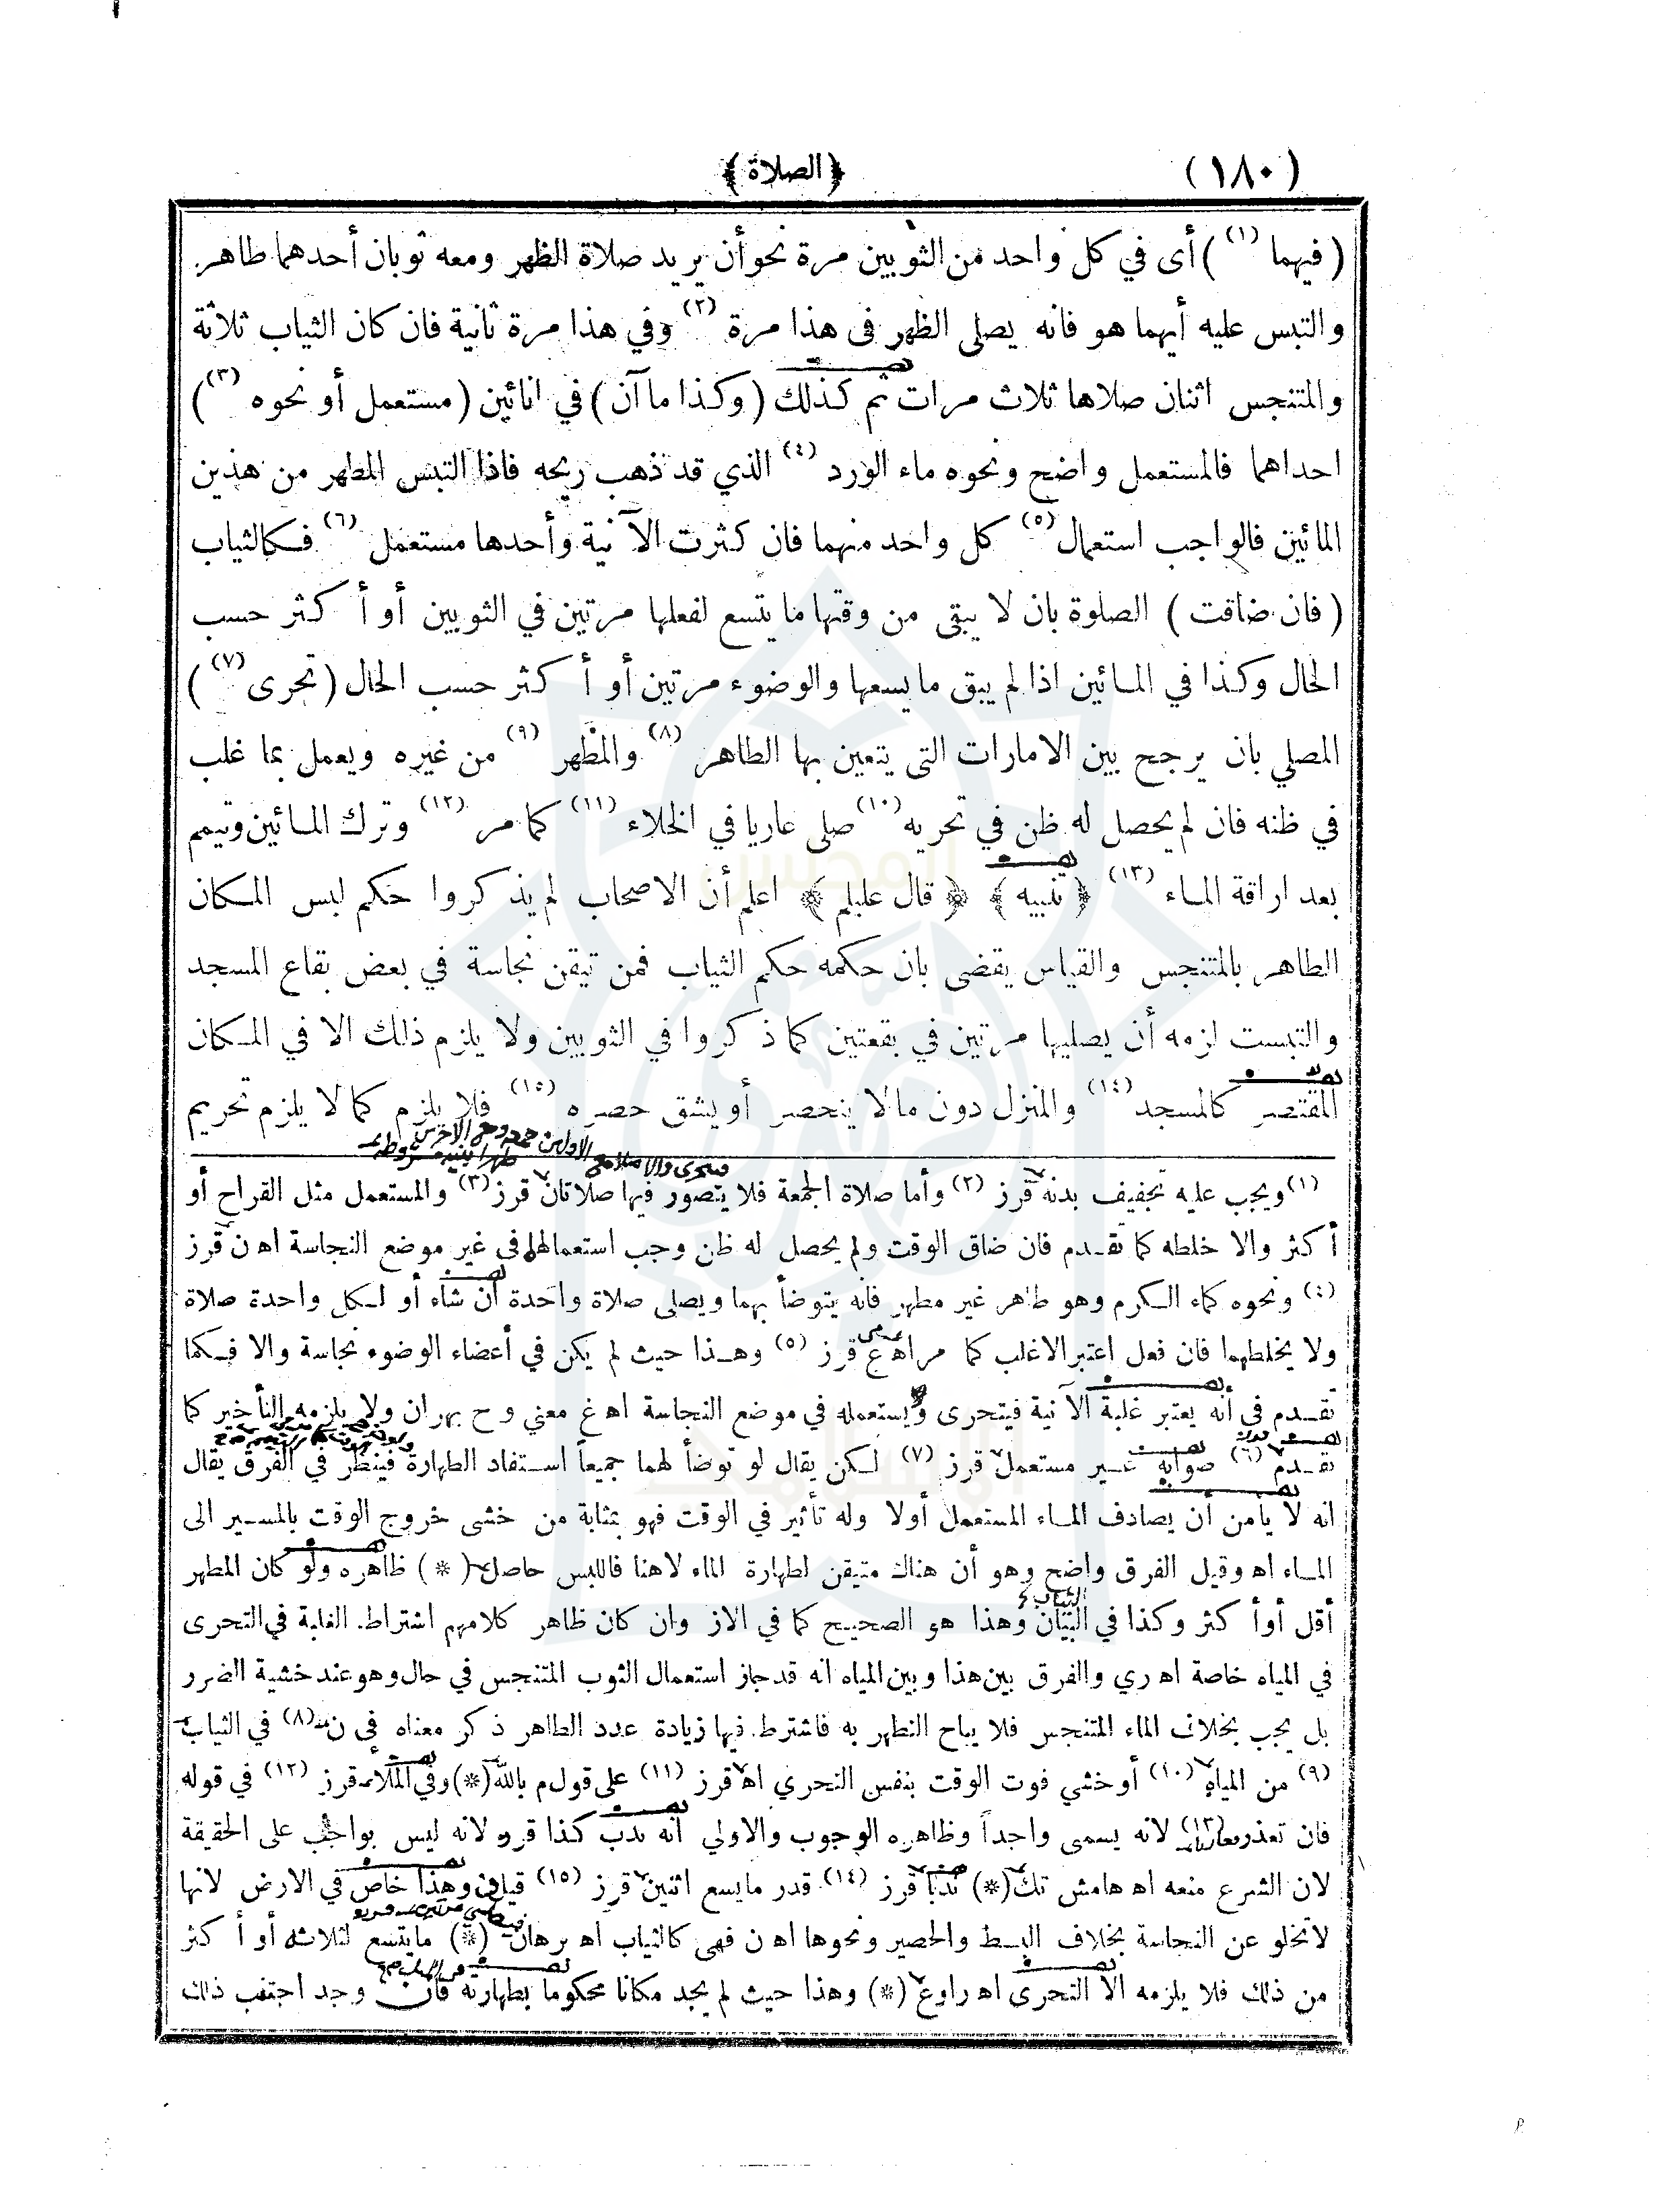 (١٨٠) ﴿الصلاة﴾
(فيهما (١)) أى في كل واحد من الثوبين مرة نحو أن يريد صلاة الظهر ومعه ثوبان أحدهما طاهر
والتبس عليه أيهما هو فانه يصلى الظهر فى هذا مرة (٢) وفي هذا مرة ثانية فان كان الثياب ثلاثة
والمتنجس اثنان صلاها ثلاث مرات ثم كذلك (وكذا ما آن) في انائين (مستعمل أو نحوه (٣))
احداهما فالمستعمل واضح ونحوه ماء الورد (٤) الذي قد ذهب ريحه فاذا التبس المطهر من هذين
المائين فالواجب استعمال (٥) كل واحد منهما فان كثرت الآنية وأحدها مستعمل (٦) فكالثياب
(فان ضاقت) الصلوة بان لا يبقى من وقتها ما يتسع لفعلها مرتين في الثوبين أو أكثر حسب
الحال وكذا في المائين اذا لم يبق ما يسعها والوضوء مرتين أو أكثر حسب الحال (تحرى (٧))
المصلي بان يرجح بين الامارات التى يتعين بها الطاهر (٨) والمطهر (٩) من غيره ويعمل بما غلب
في ظنه فان لم يحصل له ظن في تحريه (١٠) صلى عاريا في الخلاء (١١) كما مر (١٢) وترك المائين وتيمم
بعد اراقة الماء (١٣) ﴿تنبيه﴾ ﴿قال عليلم﴾ اعلم أن الاصحاب لم يذكروا حكم لبس المكان
الطاهر بالمتنجس والقياس يقضى بان حكمه حكم الثياب فمن تيقن نجاسة في بعض بقاع المسجد
والتبست لزمه أن يصليها مرتين في بقعتين كما ذكروا في الثوبين ولا يلزم ذلك الا في المكان
المقتصر كالمسجد (١٤) والمنزل دون مالا ينحصر أو يشق حصره (١٥) فلا يلزم كما لا يلزم تحريم
(١) ويجب عليه تجفيف بدنه قرز (٢) وأما صلاة الجمعة فلا يتصور فيها صلاتان قرز (٣) والمستعمل مثل القراح أو
أكثر والا خلطه كما تقدم فان ضاق الوقت ولم يحصل له ظن وجب استعمالهما فى غير موضع النجاسة اه ن قرز
(٤) ونحوه كماء الكرم وهو طاهر غير مطهر فانه يتوضأ بهما ويصلى صلاة واحدة ان شاء أو لكل واحدة صلاة
ولا يخلطهما فان فعل اعتبر الاغلب كما مر اه ع قرز (٥) وهذا حيث لم يكن في أعضاء الوضوء نجاسة والا فكما
تقدم في أنه يعتبر غلبة الآنية فيتحرى ويستعمله في موضع النجاسة اه غ معني وح بهران ولا يلزمه التأخير كما
تقدم (٦) صوابه غير مستعمل قرز (٧) لكن يقال لو توضأ لهما جميعاً استفاد الطهارة فينظر في الفرق يقال
انه لا يأمن أن يصادف الماء المستعمل أولا وله تأثير في الوقت فهو بمثابة من خشى خروج الوقت بالمسير الى
الماء اه وقيل الفرق واضح وهو أن هناك متيقن لطهارة الماء لا هنا فاللبس حاصل (*) ظاهره ولو كان المطهر
أقل أو أكثر وكذا في البيان وهذا هو الصحيح كما في الاز وان كان ظاهر كلامهم اشتراط الغلبة في التحرى
في المياه خاصة اه ري والفرق بين هذا وبين المياه انه قد جاز استعمال الثوب المتنجس في حال وهو عند خشية الضرر
بل يجب بخلاف الماء المتنجس فلا يباح التطهر به فاشترط فيها زيادة عدد الطاهر ذكر معناه في ن (٨) في الثياب
(٩) من المياه (١٠) أو خشي فوت الوقت بنفس التحري اه قرز (١١) على قول م بالله (*) وفي الملاء قرز (١٢) في قوله
فان تعذر فعاريا (١٣) لانه يسمى واجداً وظاهره الوجوب والاولي انه ندب كذا قرر لانه ليس بواجب على الحقيقة
لان الشرع منعه اه هامش تك (*) ندبا قرز (١٤) قدر ما يسع اثنين قرز (١٥) قيل ف وهذا خاص في الارض لانها
لا تخلو عن النجاسة بخلاف البسط والحصير ونحوها اه ن فهى كالثياب اه برهان (*) ما يتسع لثلاثه أو أكثر
من ذلك فلا يلزمه الا التحرى اه راوع (*) وهذا حيث لم يجد مكانا محكوما بطهارته فان وجد اجتنب ذلك